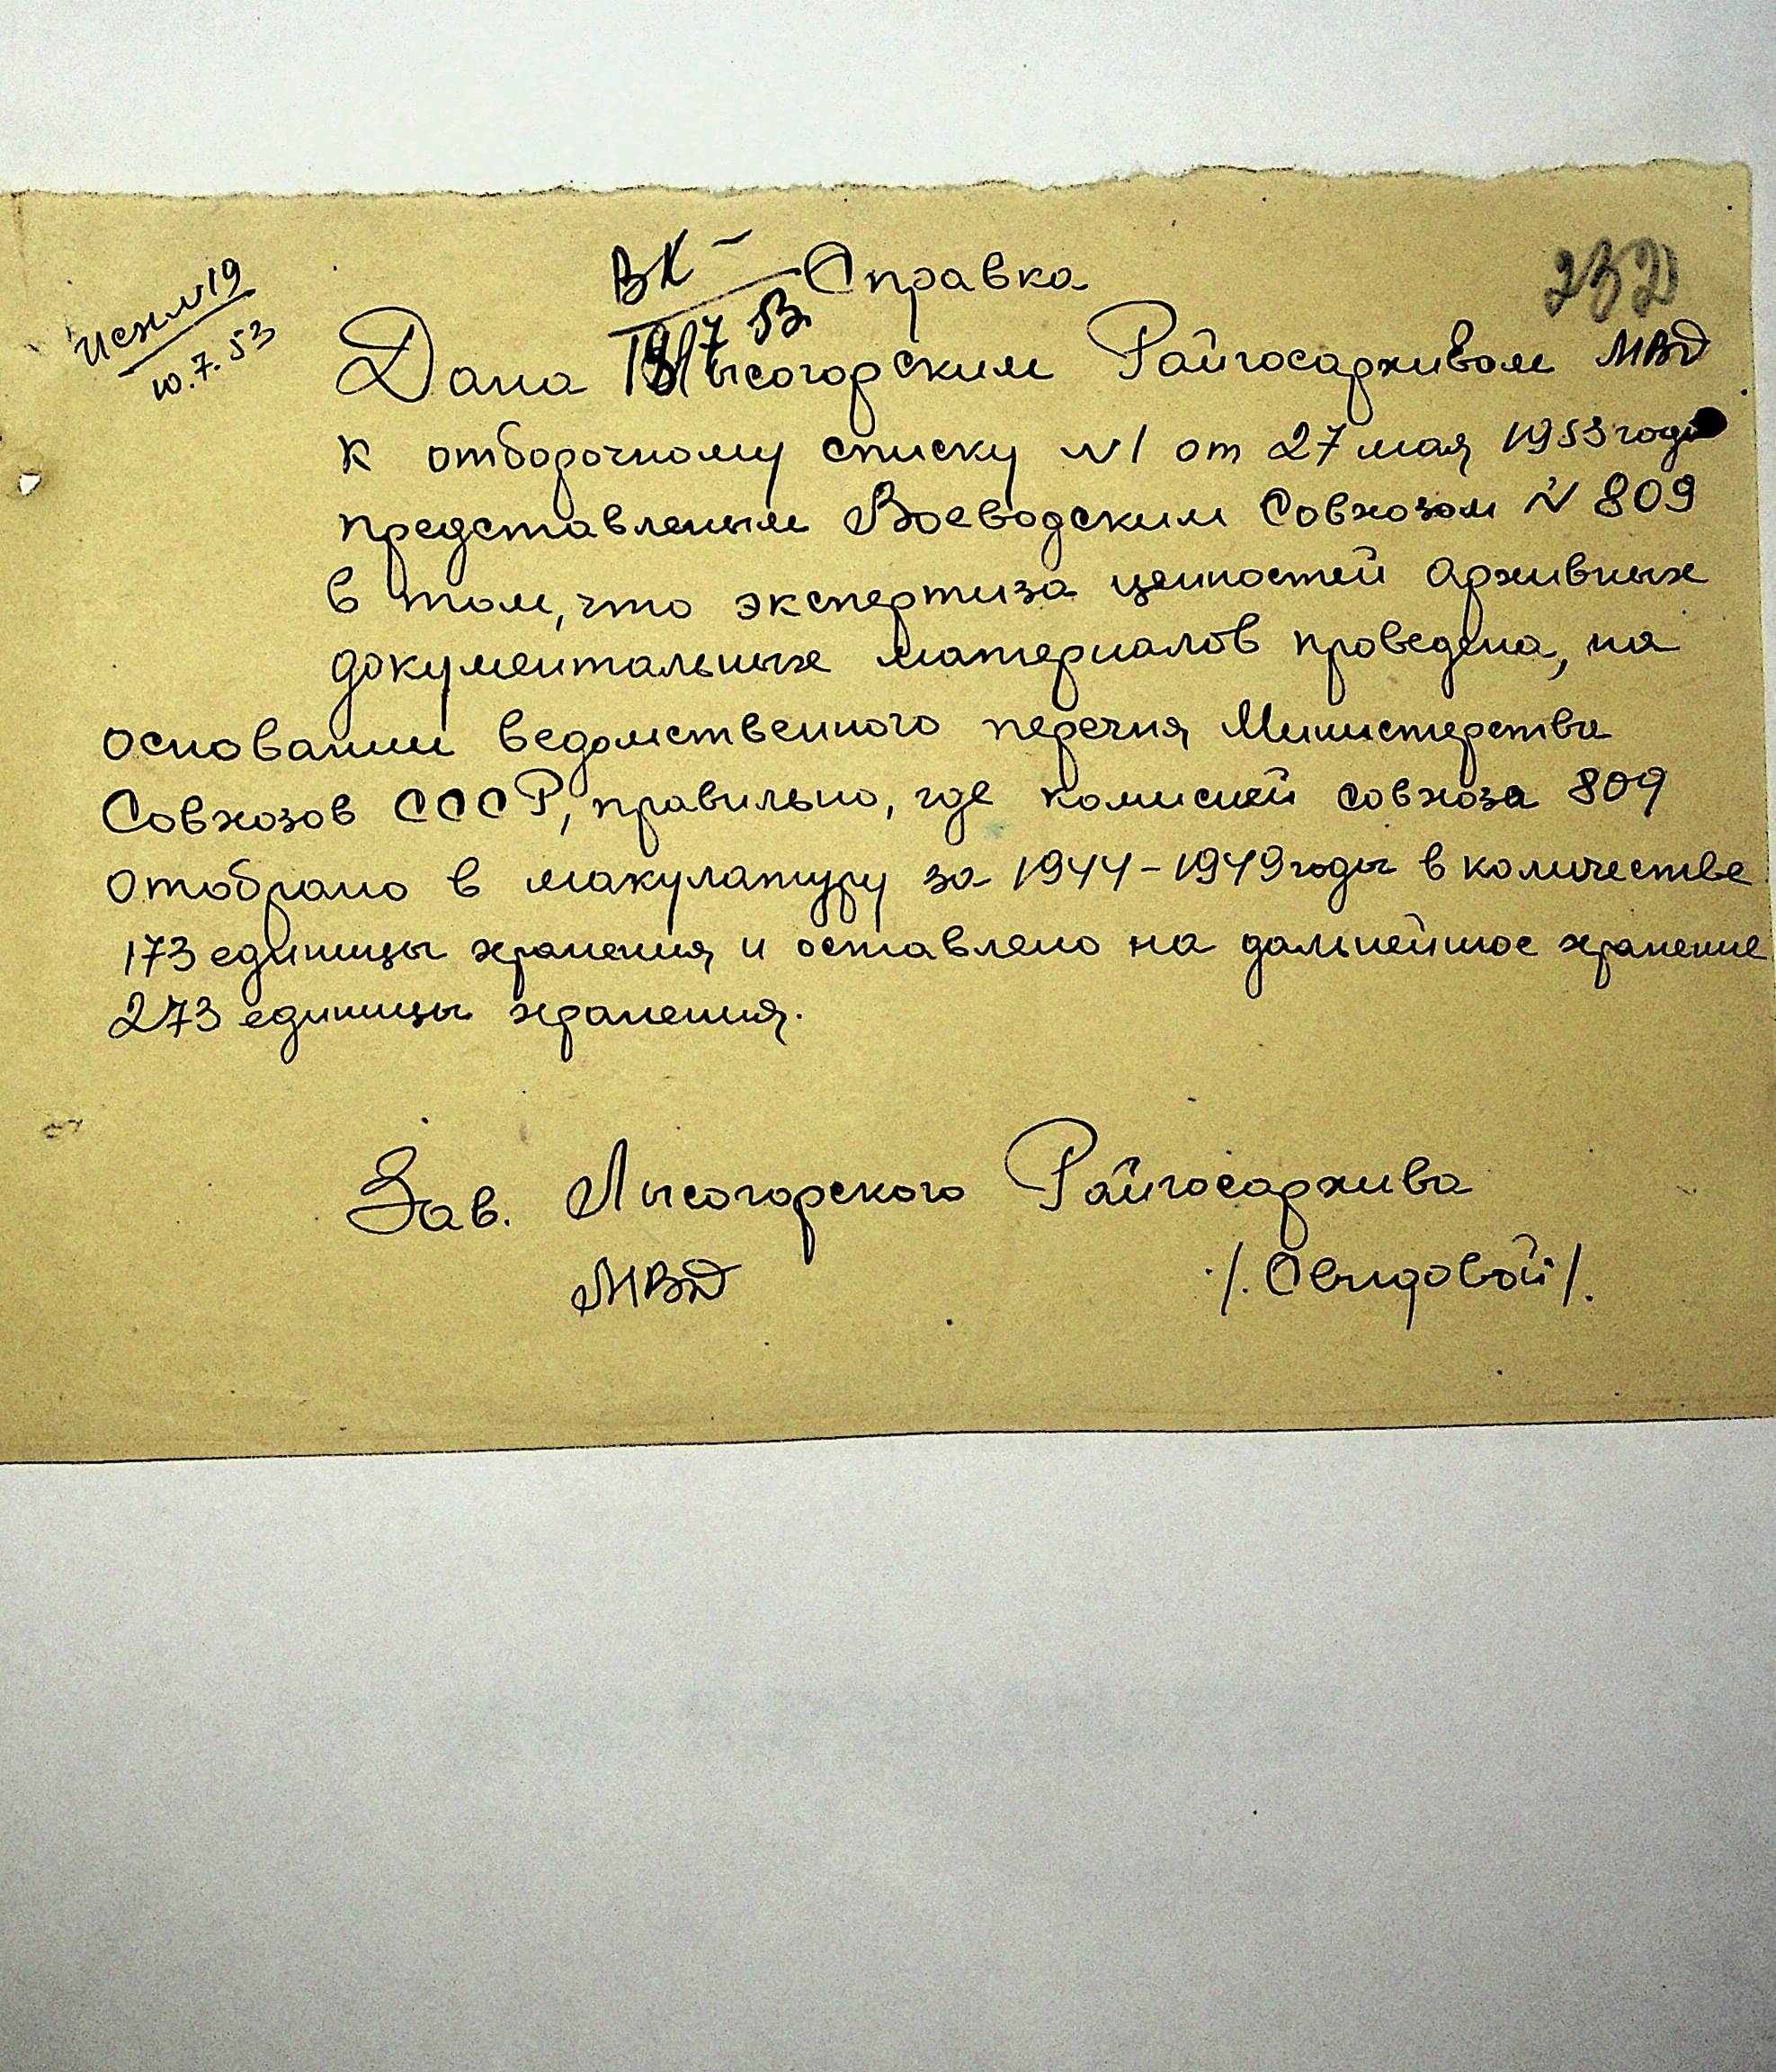 исх. N 19
10.7.53
ВК –
7 53
232
Справка
Дана Лысогорским Райгосархивом МВД
к отборочному списку N 1 от 27 мая 1953 года
представленым Воеводским Совхозом N 809
в том, что экспертиза ценностей архивных
документальных материалов проведена, на
основании ведомственного перечня Министерства
Совхозов СССР, правильно, где комисией совхоза 809
отобрано в макулатуру за 1944-1949 годы в количестве
173 единицы хранения и оставлено на дальнейшое хранение
273 единицы хранения.
Зав. Лысогорского Райгосархива
МВД /. /.